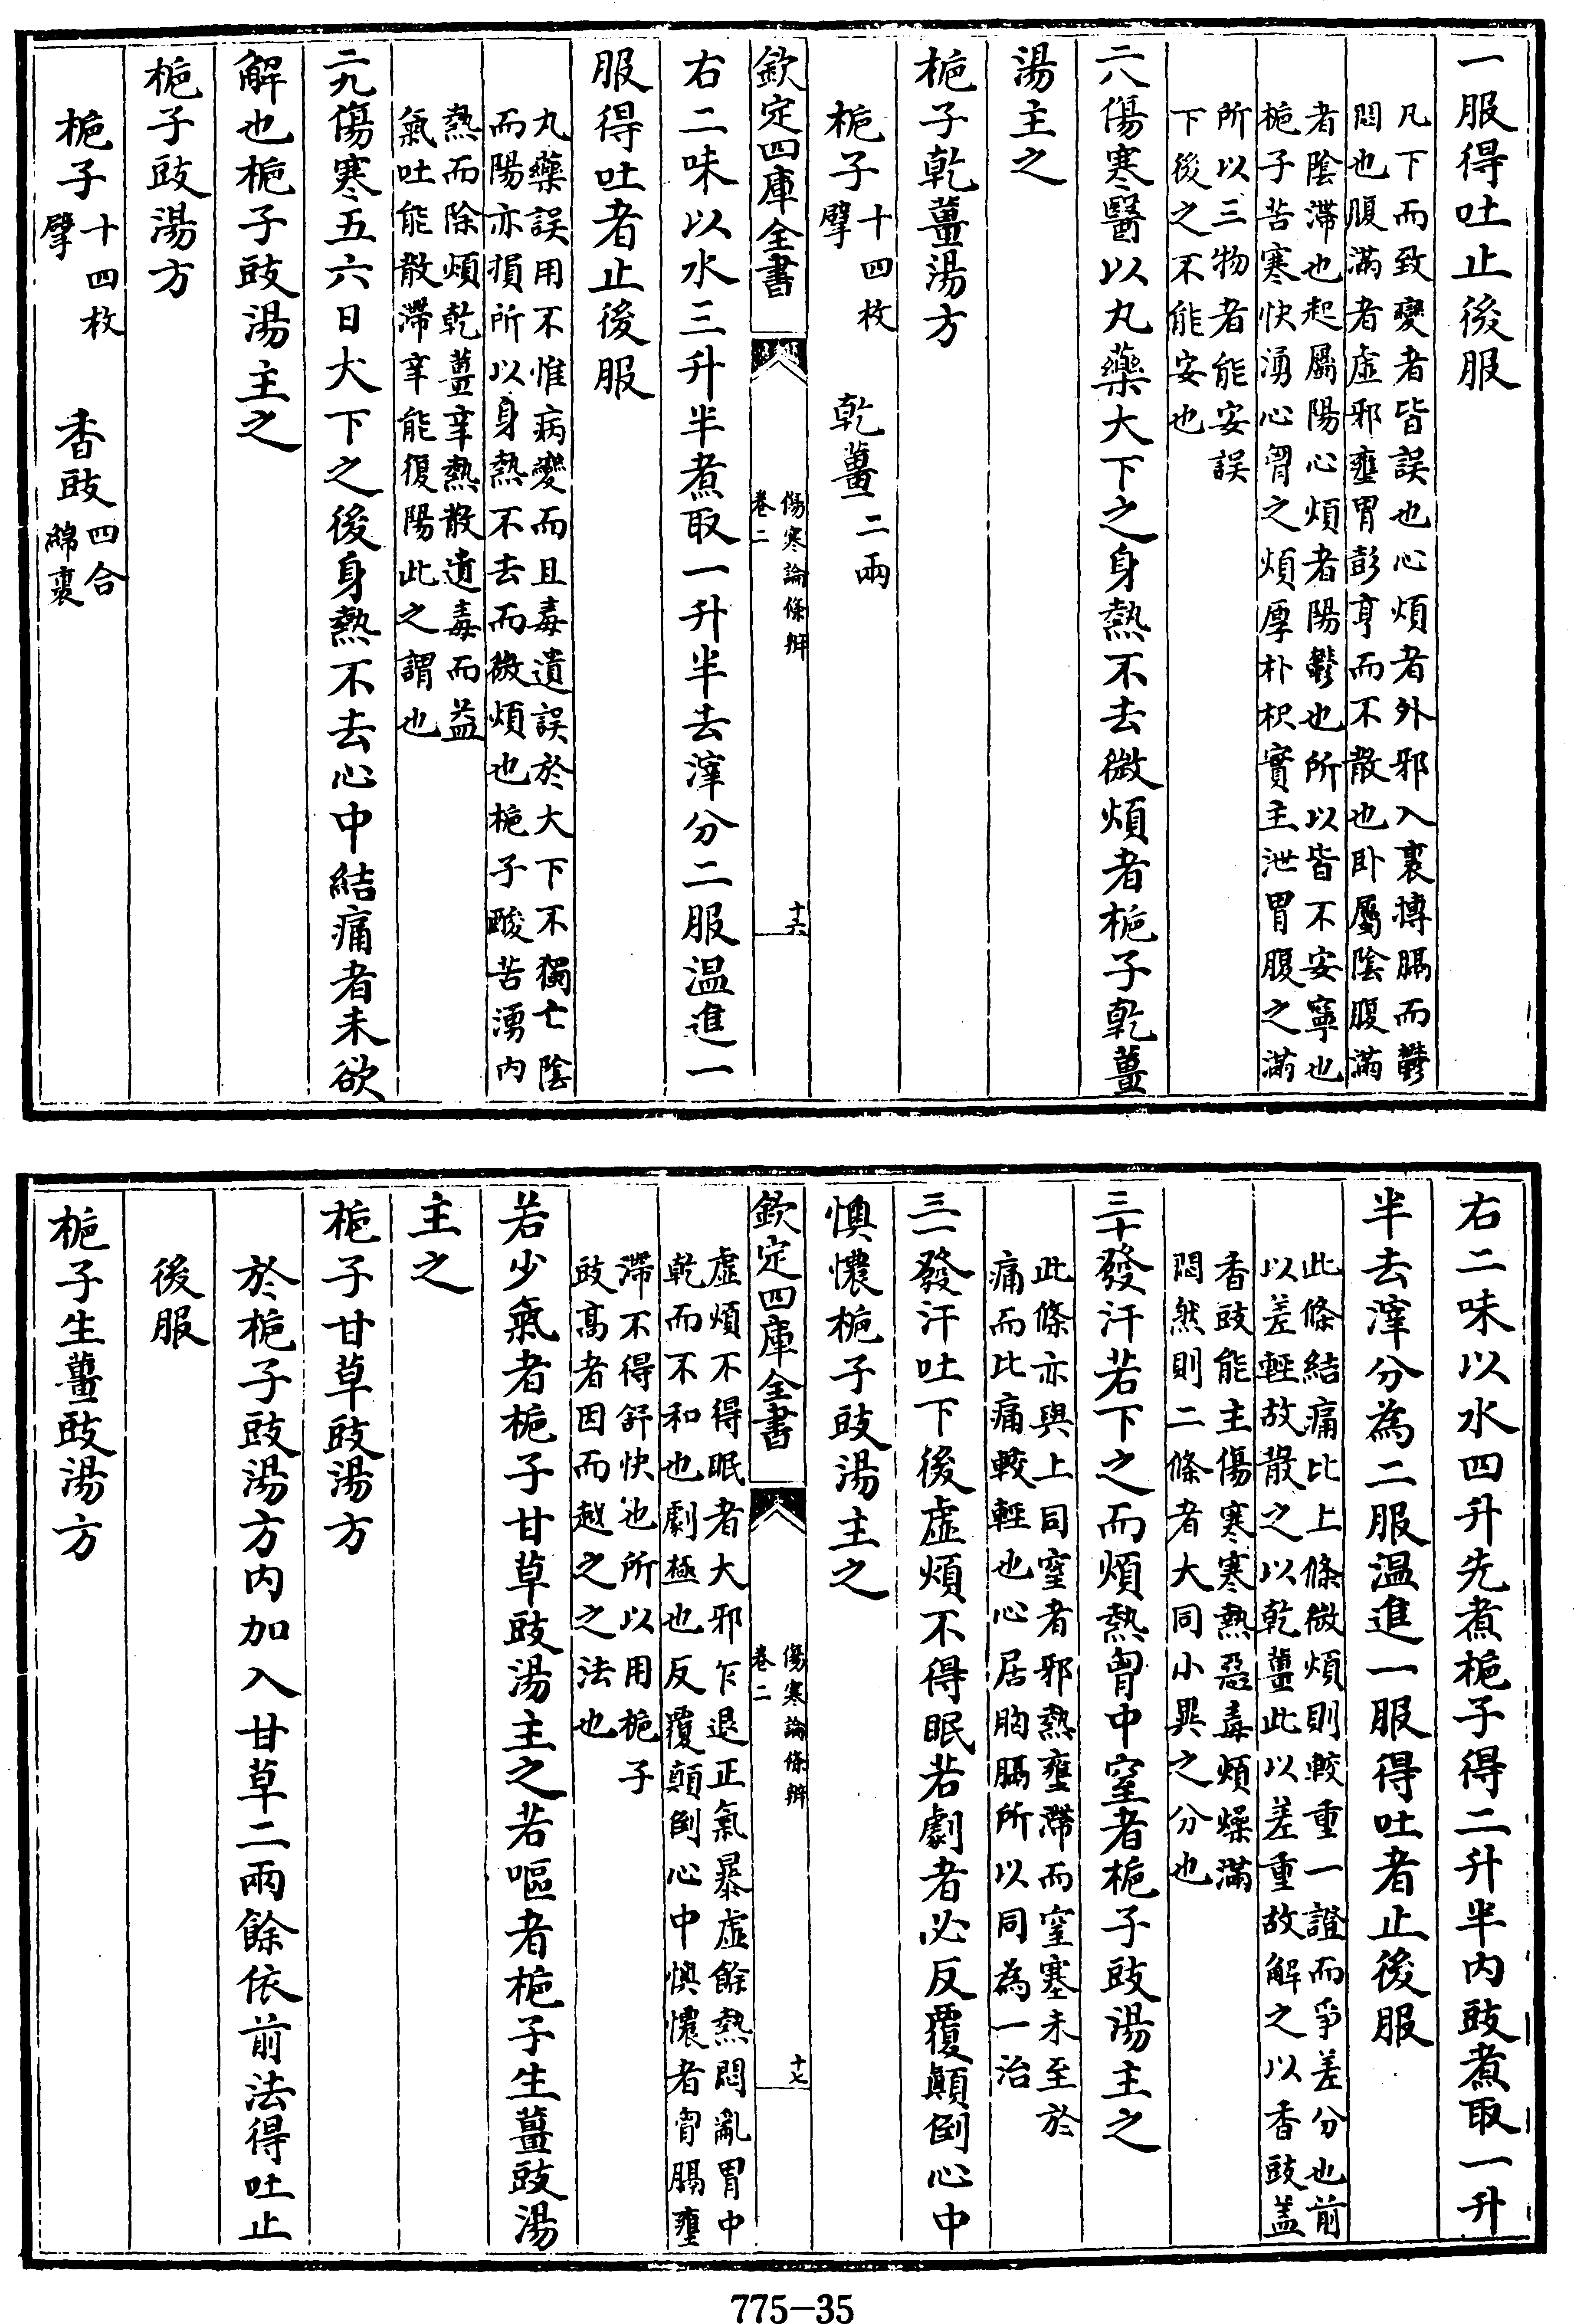 一服得吐止後服
凡下而致變者皆誤也心煩者外邪入裏慱膈而鬱
悶也腹滿者虛邪壅胃彭亨而不散也卧屬陰腹滿
者陰滯也起屬陽心煩者陽鬱也所以皆不安寧也
梔子苦寒快湧心胷之煩厚朴枳實主泄胃腹之滿
所以三物者能安誤
下後之不能安也
二八傷寒醫以丸藥大下之身熱不去微煩者梔子乾薑
湯主之
梔子乾薑湯方
梔子十四枚擘 乾薑二兩
欽定四庫全書 傷寒論條辨卷二 十六
右二味以水三升半煮取一升半去滓分二服温進一
服得吐者止後服
丸藥誤用不惟病變而且毒遺誤於大下不獨亡陰
而陽亦損所以身熱不去而微煩也梔子酸苦湧內
熱而除煩乾薑辛熱散遺毒而益
氣吐能散滯辛能復陽此之謂也
二九傷寒五六日大下之後身熱不去心中結痛者未欲
解也梔子豉湯主之
梔子豉湯方
梔子十四枚擘 香豉四合綿裹
右二味以水四升先煮梔子得二升半內豉煮取一升
半去滓分為二服温進一服得吐者止後服
此條結痛比上條微煩則較重一證而爭差分也前
以差輕故散之以乾薑此以差重故解之以香豉盖
香豉能主傷寒寒熱惡毒煩燥滿
悶然則二條者大同小異之分也
三十發汗若下之而煩熱胷中窒者梔子豉湯主之
此條亦與上同窒者邪熱壅滯而窒塞未至於
痛而比痛較輕也心居胸膈所以同為一治
三一發汗吐下後虛煩不得眠若劇者必反覆顛倒心中
懊憹梔子豉湯主之
欽定四庫全書 傷寒論條辨卷二 十七
虛煩不得眠者大邪乍退正氣暴虛餘熱悶亂胃中
乾而不和也劇極也反覆顛倒心中懊憹者胷膈壅
滯不得舒快也所以用梔子
豉高者因而越之之法也
若少氣者梔子甘草豉湯主之若嘔者梔子生薑豉湯
主之
梔子甘草豉湯方
於梔子豉湯方內加入甘草二兩餘依前法得吐止
後服
梔子生薑豉湯方
775-35